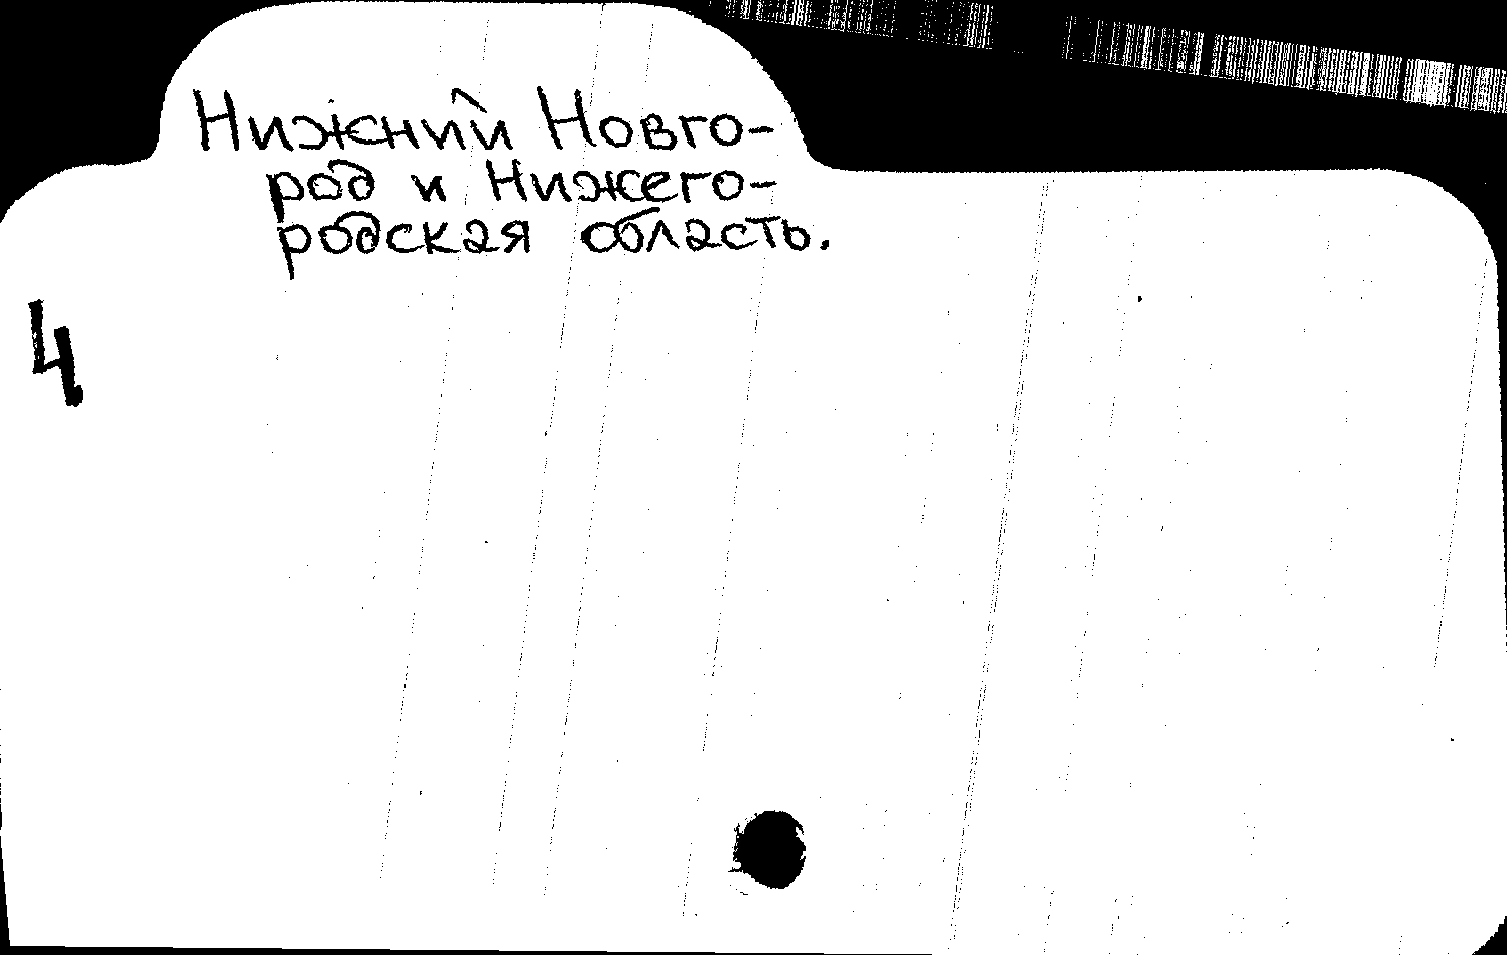 Нижний Новго-
род и Нижего-
родская область.
4